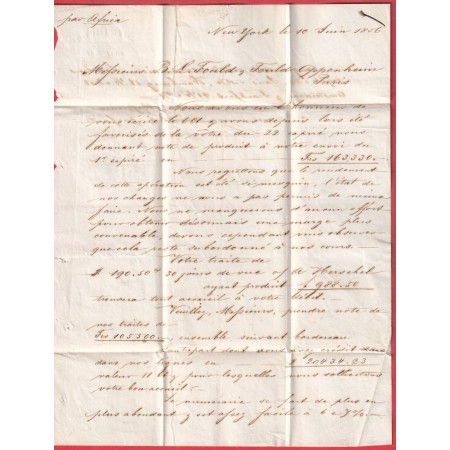 par Africa
New York le 10 Juin 1856
Messieurs B. L. Fould & Fould Oppenheim
Paris
Nous avons eu l'honneur de
vous écrire le & vous depuis lors été
favorisés de la votre du 22 copiré nous
donnant note de produit à notre envoi du
1er copiré en Frs 163.330.-
Nous regrettons que le rendement
de cette opération ait été si presque, l'état de
nos changes ne nous a pas permis de mieux
faire. Nous ne manquerons d'avoir effort
pour obtenir désormais une marge plus
convenable, devons cependant vous observer
que cela reste subordonné à nos cours.
Votre traite de
£ 190.50 30 jours de vue s/ A Herschel
ayant produit $ 988.50
trouvera tout accueil à votre débit.
Veuillez, Messieurs, prendre note de
nos traites de
Frs 105500.- ensemble suivant bordereau
d'autre part dont avons
dans nos lignes en $ 20434.23
valeur 11 ct, pour lesquelles nous sollicitons
votre bon accueil.
Le numéraire se fait de plus en
plus abondant & est assez facile à 6 a 7%.-